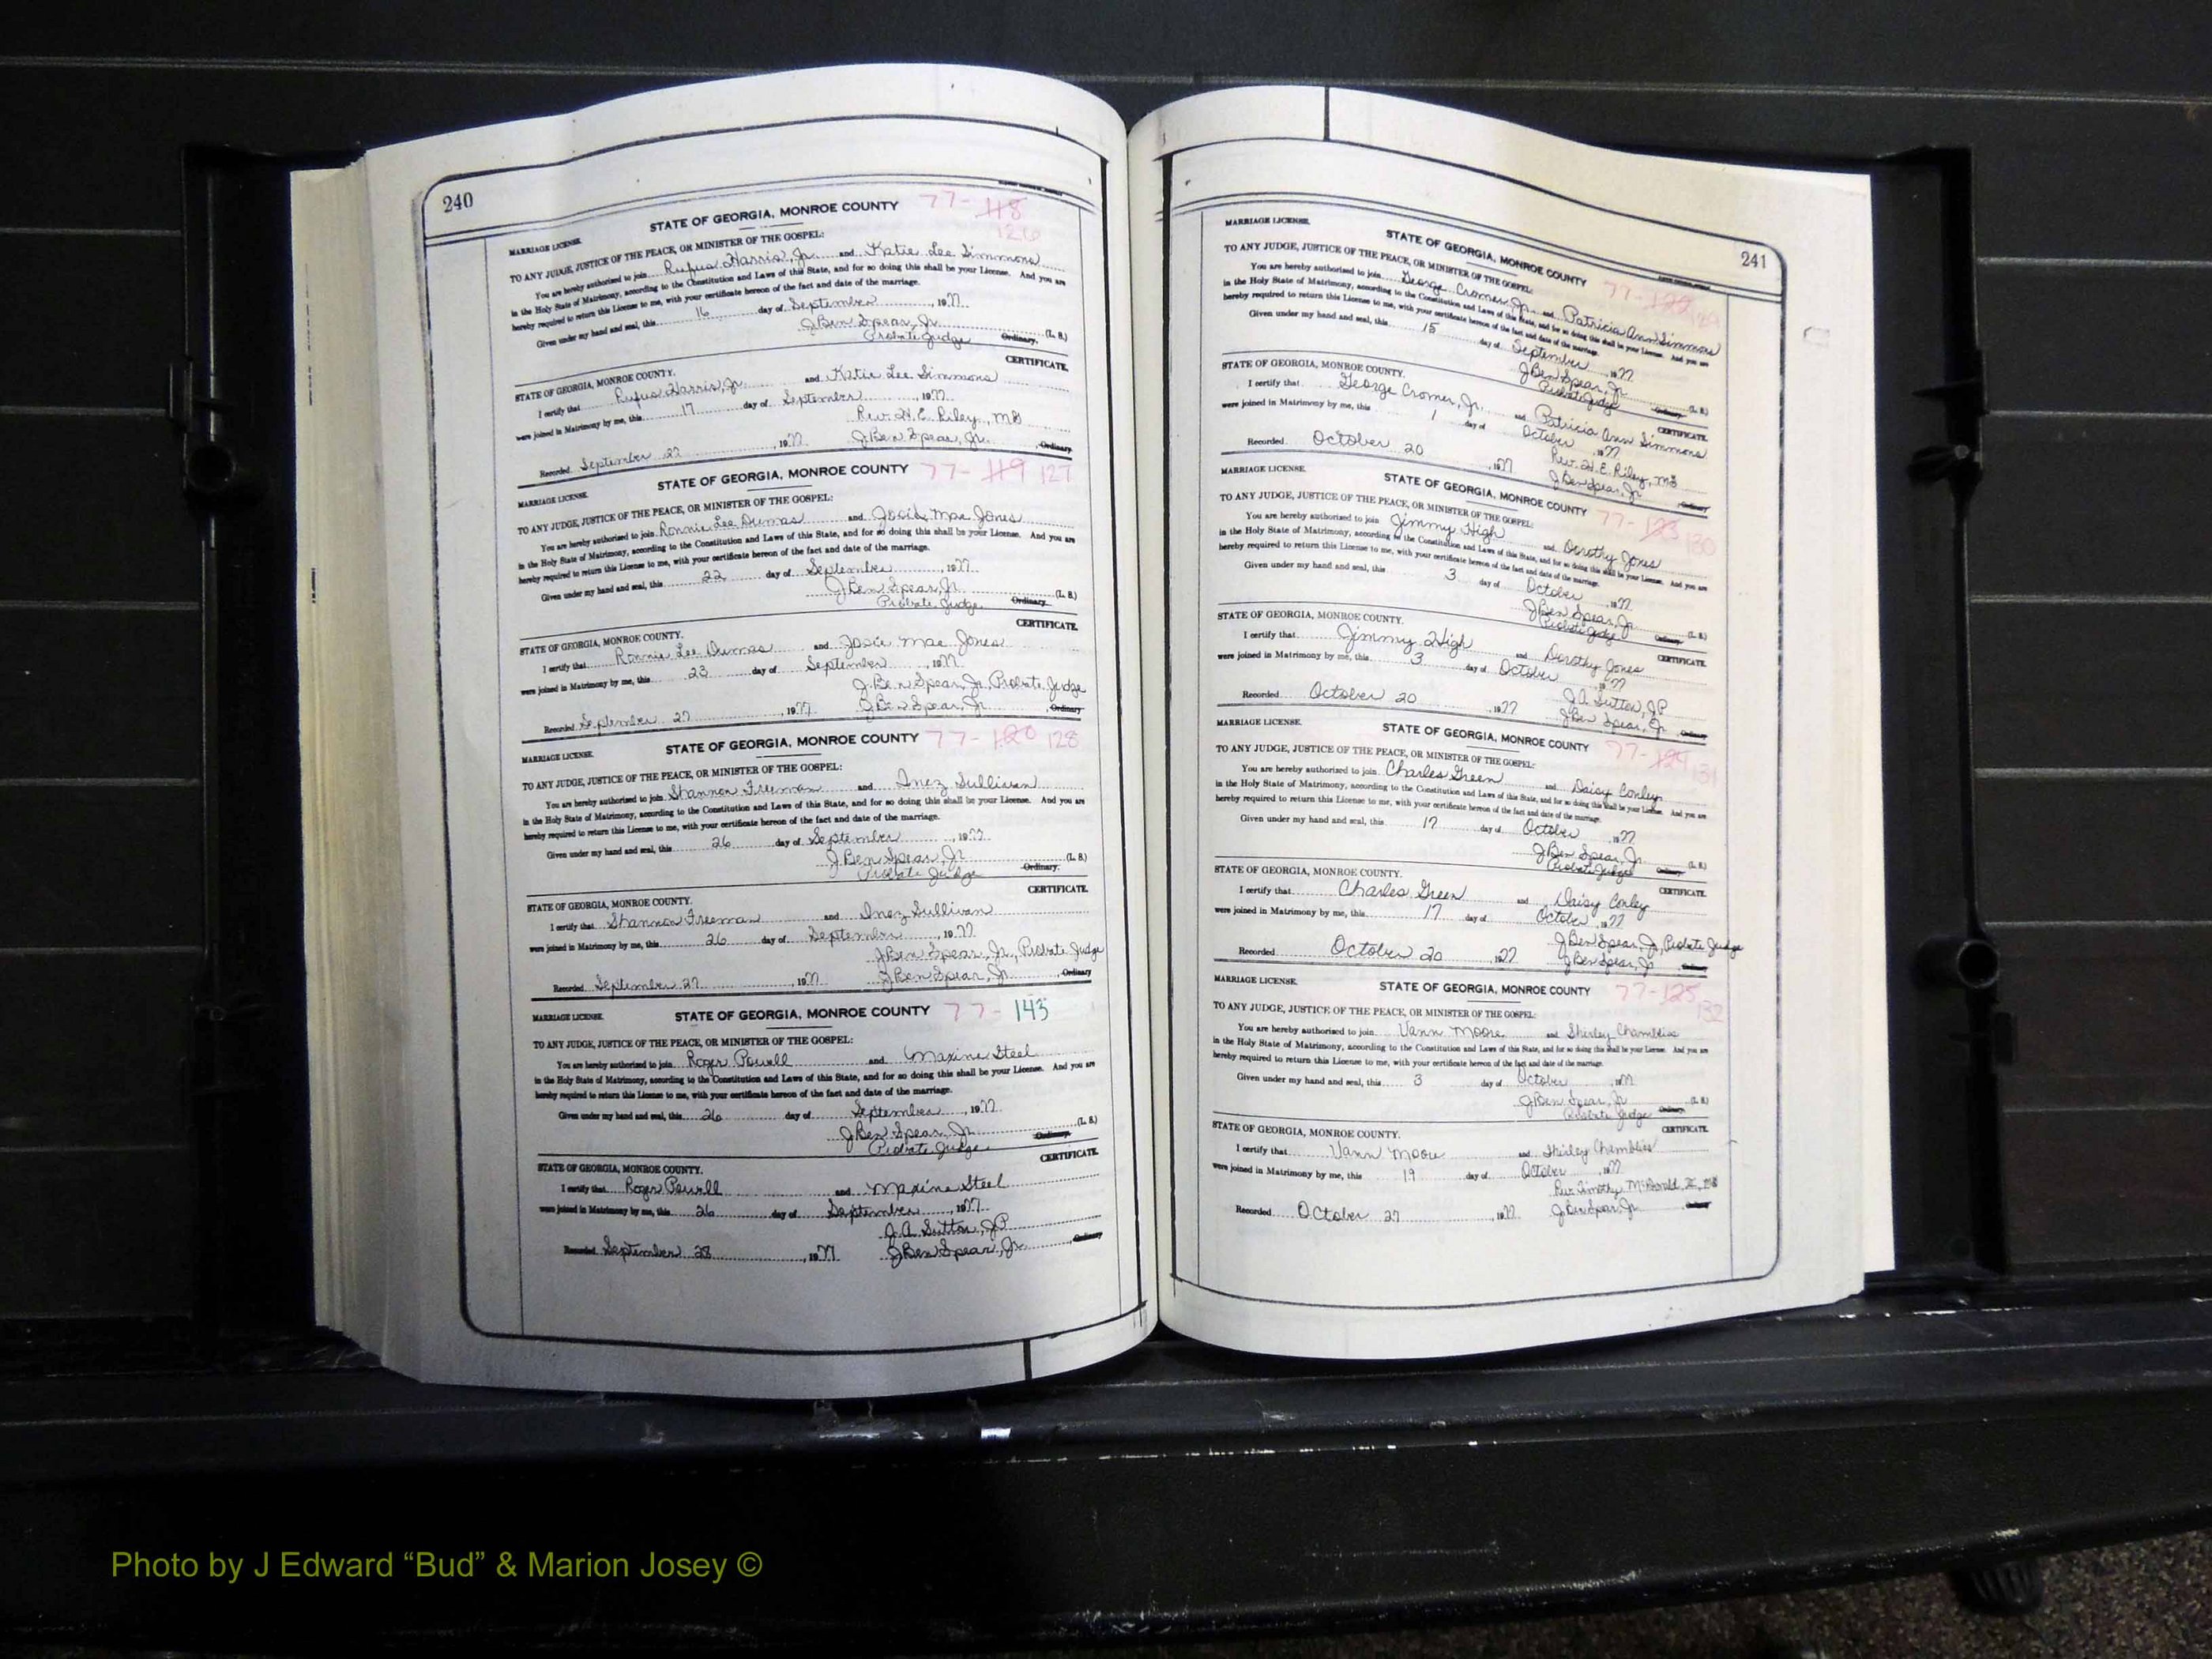 240
STATE OF GEORGIA, MONROE COUNTY 77-118
126
MARRIAGE LICENSE.
TO ANY JUDGE, JUSTICE OF THE PEACE, OR MINISTER OF THE GOSPEL:
You are hereby authorized to join Rufus Harris, Jr. and Katie Lee Simmons
in the Holy State of Matrimony, according to the Constitution and Laws of this State, and for so doing this shall be your License. And you are
hereby required to return this License to me, with your certificate hereon of the fact and date of the marriage.
Given under my hand and seal, this 16 day of September, 1977
J Ben Spear, Jr. (L. S.)
Probate Judge Ordinary.
CERTIFICATE.
STATE OF GEORGIA, MONROE COUNTY.
I certify that Rufus Harris, Jr. and Katie Lee Simmons
were joined in Matrimony by me, this 17 day of September, 1977
Rev. H. E. Riley, MG
Recorded September 27, 1977 J Ben Spear, Jr., Ordinary
STATE OF GEORGIA, MONROE COUNTY 77-119 127
MARRIAGE LICENSE.
TO ANY JUDGE, JUSTICE OF THE PEACE, OR MINISTER OF THE GOSPEL:
You are hereby authorized to join Ronnie Lee Dumas and Josie Mae Jones
in the Holy State of Matrimony, according to the Constitution and Laws of this State, and for so doing this shall be your License. And you are
hereby required to return this License to me, with your certificate hereon of the fact and date of the marriage.
Given under my hand and seal, this 22 day of September, 1977
J Ben Spear, Jr. (L. S.)
Probate Judge Ordinary.
CERTIFICATE.
STATE OF GEORGIA, MONROE COUNTY.
I certify that Ronnie Lee Dumas and Josie Mae Jones
were joined in Matrimony by me, this 23 day of September, 1977
J. Ben Spear, Jr, Probate Judge
Recorded September 27, 1977 J Ben Spear, Jr., Ordinary
STATE OF GEORGIA, MONROE COUNTY 77-120 128
MARRIAGE LICENSE.
TO ANY JUDGE, JUSTICE OF THE PEACE, OR MINISTER OF THE GOSPEL:
You are hereby authorized to join Shannon Freeman and Inez Sullivan
in the Holy State of Matrimony, according to the Constitution and Laws of this State, and for so doing this shall be your License. And you are
hereby required to return this License to me, with your certificate hereon of the fact and date of the marriage.
Given under my hand and seal, this 26 day of September, 1977
J Ben Spear, Jr. (L. S.)
Probate Judge Ordinary.
CERTIFICATE.
STATE OF GEORGIA, MONROE COUNTY.
I certify that Shannon Freeman and Inez Sullivan
were joined in Matrimony by me, this 26 day of September, 1977
J Ben Spear, Jr., Probate Judge
Recorded September 27, 1977 J Ben Spear, Jr., Ordinary
MARRIAGE LICENSE. STATE OF GEORGIA, MONROE COUNTY 77-143
TO ANY JUDGE, JUSTICE OF THE PEACE, OR MINISTER OF THE GOSPEL:
You are hereby authorized to join Roger Powell and Maxine Steel
in the Holy State of Matrimony, according to the Constitution and Laws of this State, and for so doing this shall be your License. And you are
hereby required to return this License to me, with your certificate hereon of the fact and date of the marriage.
Given under my hand and seal, this 26 day of September, 1977
J Ben Spear, Jr. (L. S.)
Probate Judge Ordinary.
CERTIFICATE.
STATE OF GEORGIA, MONROE COUNTY.
I certify that Roger Powell and Maxine Steel
were joined in Matrimony by me, this 26 day of September, 1977
J. A. Sutton, JP
Recorded September 28, 1977 J Ben Spear, Jr., Ordinary
241
MARRIAGE LICENSE. STATE OF GEORGIA, MONROE COUNTY 77-122 129
TO ANY JUDGE, JUSTICE OF THE PEACE, OR MINISTER OF THE GOSPEL:
You are hereby authorized to join George Cromer, Jr. and Patricia Ann Simmons
in the Holy State of Matrimony, according to the Constitution and Laws of this State, and for so doing this shall be your License. And you are
hereby required to return this License to me, with your certificate hereon of the fact and date of the marriage.
Given under my hand and seal, this 15 day of September, 1977
J Ben Spear, Jr. (L. S.)
Probate Judge Ordinary.
CERTIFICATE.
STATE OF GEORGIA, MONROE COUNTY.
I certify that George Cromer, Jr. and Patricia Ann Simmons
were joined in Matrimony by me, this 1 day of October, 1977
Rev. H. E. Riley, MG
Recorded October 20, 1977 J Ben Spear, Jr, Ordinary
MARRIAGE LICENSE. STATE OF GEORGIA, MONROE COUNTY 77-123 130
TO ANY JUDGE, JUSTICE OF THE PEACE, OR MINISTER OF THE GOSPEL:
You are hereby authorized to join Jimmy High and Dorothy Jones
in the Holy State of Matrimony, according to the Constitution and Laws of this State, and for so doing this shall be your License. And you are
hereby required to return this License to me, with your certificate hereon of the fact and date of the marriage.
Given under my hand and seal, this 3 day of October, 1977
J Ben Spear, Jr. (L. S.)
Probate Judge Ordinary.
CERTIFICATE.
STATE OF GEORGIA, MONROE COUNTY.
I certify that Jimmy High and Dorothy Jones
were joined in Matrimony by me, this 3 day of October, 1977
J. A. Sutton, JP
Recorded October 20, 1977 J Ben Spear, Jr, Ordinary
MARRIAGE LICENSE. STATE OF GEORGIA, MONROE COUNTY 77-124 131
TO ANY JUDGE, JUSTICE OF THE PEACE, OR MINISTER OF THE GOSPEL:
You are hereby authorized to join Charles Green and Daisy Conley
in the Holy State of Matrimony, according to the Constitution and Laws of this State, and for so doing this shall be your License. And you are
hereby required to return this License to me, with your certificate hereon of the fact and date of the marriage.
Given under my hand and seal, this 17 day of October, 1977
J Ben Spear, Jr. (L. S.)
Probate Judge Ordinary.
CERTIFICATE.
STATE OF GEORGIA, MONROE COUNTY.
I certify that Charles Green and Daisy Conley
were joined in Matrimony by me, this 17 day of October, 1977
J Ben Spear, Jr, Probate Judge
Recorded October 20, 1977 J Ben Spear, Jr, Ordinary
MARRIAGE LICENSE. STATE OF GEORGIA, MONROE COUNTY 77-125
132
TO ANY JUDGE, JUSTICE OF THE PEACE, OR MINISTER OF THE GOSPEL:
You are hereby authorized to join Vann Moore and Shirley Chambliss
in the Holy State of Matrimony, according to the Constitution and Laws of this State, and for so doing this shall be your License. And you are
hereby required to return this License to me, with your certificate hereon of the fact and date of the marriage.
Given under my hand and seal, this 3 day of October, 1977
J Ben Spear, Jr (L. S.)
Probate Judge Ordinary.
CERTIFICATE.
STATE OF GEORGIA, MONROE COUNTY.
I certify that Vann Moore and Shirley Chambliss
were joined in Matrimony by me, this 19 day of October, 1977
Rev. Timothy McDonald, III, MG
Recorded October 27, 1977 J Ben Spear, Jr. Ordinary
Photo by J Edward “Bud” & Marion Josey ©